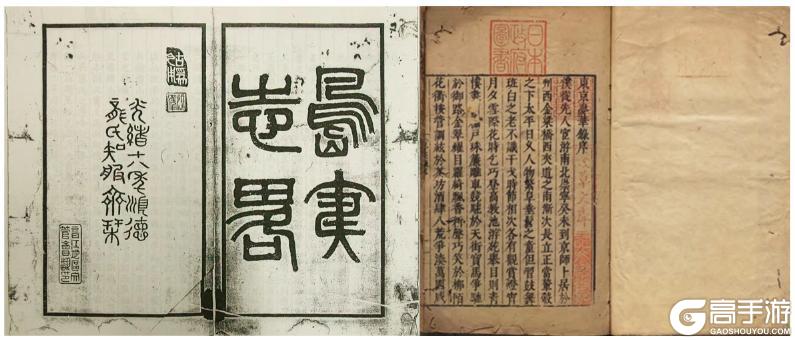 島夷
志略
光緒十八年順德
龍氏知服齋栞
日本
政府
圖書
東京夢華錄序
僕從先人宦游南北崇寧癸未到京師卜居於
州西金梁橋西夾道之南漸次長立正當輦轂
之下太平日久人物繁阜垂髫之童但習鼓舞
班白之老不識干戈時節相次各有觀賞燈宵
月夕雪際花時乞巧登高教池游苑舉目則青
樓畫閣戶珠簾雕車競駐於天街寶馬爭馳
於御路金翠耀目羅綺飄香新聲巧笑於柳陌
花衢按管調絃於茶坊酒肆八荒爭湊萬國咸
高手游
GAOSHOUYOU.COM